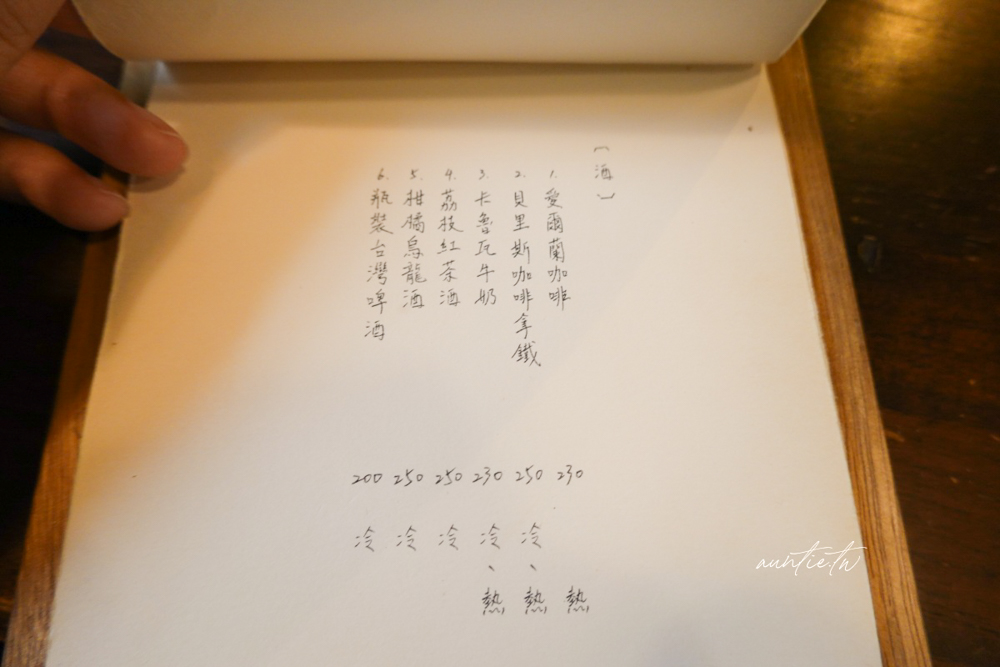 〔酒〕
1. 愛爾蘭咖啡 230 熱
2. 貝里斯咖啡拿鐵 250 冷、熱
3. 卡魯瓦牛奶 230 冷、熱
4. 荔枝紅茶酒 250 冷
5. 柑橘烏龍酒 250 冷
6. 瓶裝台灣啤酒 200 冷
auntie.tw